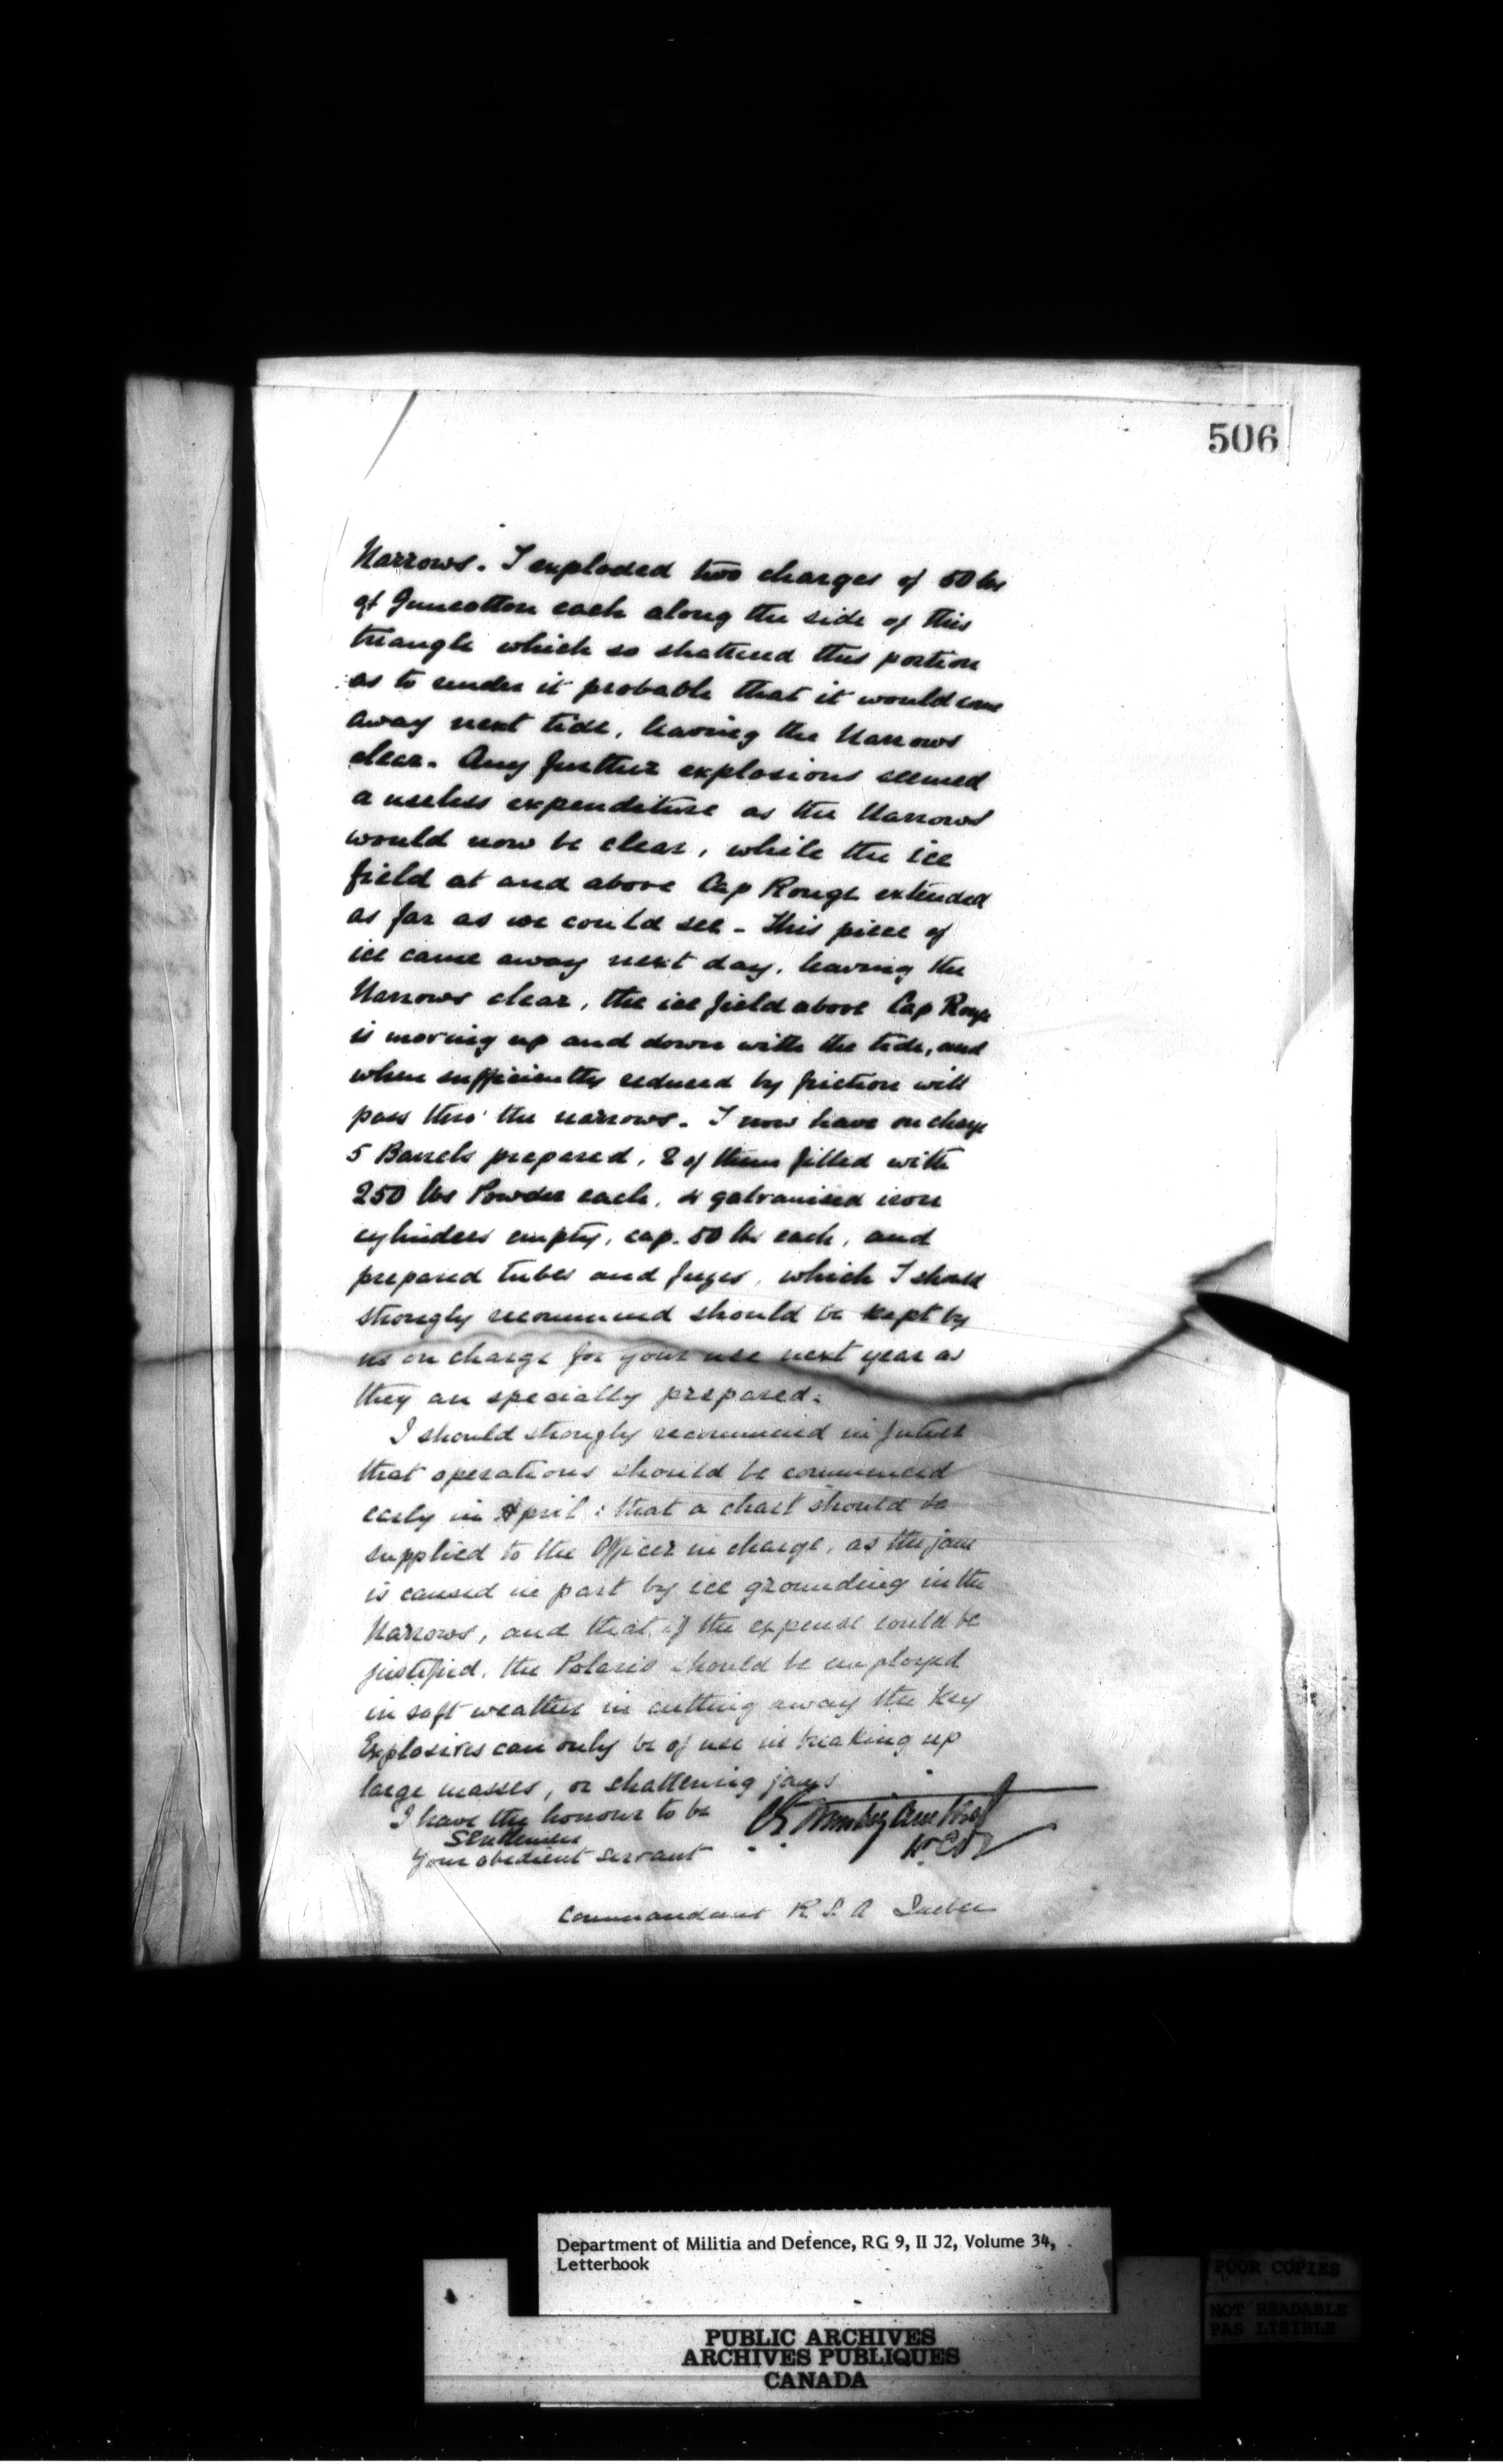 506
Narrows. I exploded two charges of 50 lbs
of Guncotton each along the side of this
triangle which so shattered this portion
as to render it probable that it would come
away next tide, leaving the Narrows
clear. Any further explosions seemed
a useless expenditure as the Narrows
would now be clear, while the ice
field at and above Cap Rouge extended
as far as we could see - This piece of
ice came away next day, leaving the
Narrows clear, the ice field above Cap Rouge
is moving up and down with the tide, and
when sufficiently reduced by friction will
pass thro' the narrows. I now have on charge
5 Barrels prepared, 2 of them filled with
250 lbs Powder each, 4 galvanised iron
cylinders empty, cap. 50 lbs each, and
prepared tubes and fuzes, which I should
strongly recommend should be kept by
us on charge for your use next year as
they are specially prepared.
I should strongly recommend in future
that operations should be commenced
early in April : that a chart should be
supplied to the Officer in charge, as the jam
is caused in part by ice grounding in the
Narrows, and that, if the expense could be
justified, the Polaris should be employed
in soft weather in cutting away the Key
Explosives can only be of use in breaking up
large masses, or shattering jams
I have the honour to be
Gentlemen
Your obedient servant
Commandant R S A Quebec
Department of Militia and Defence, RG 9, II J2, Volume 34,
Letterbook
POOR COPIES
NOT READABLE
PAS LISIBLE
PUBLIC ARCHIVES
ARCHIVES PUBLIQUES
CANADA